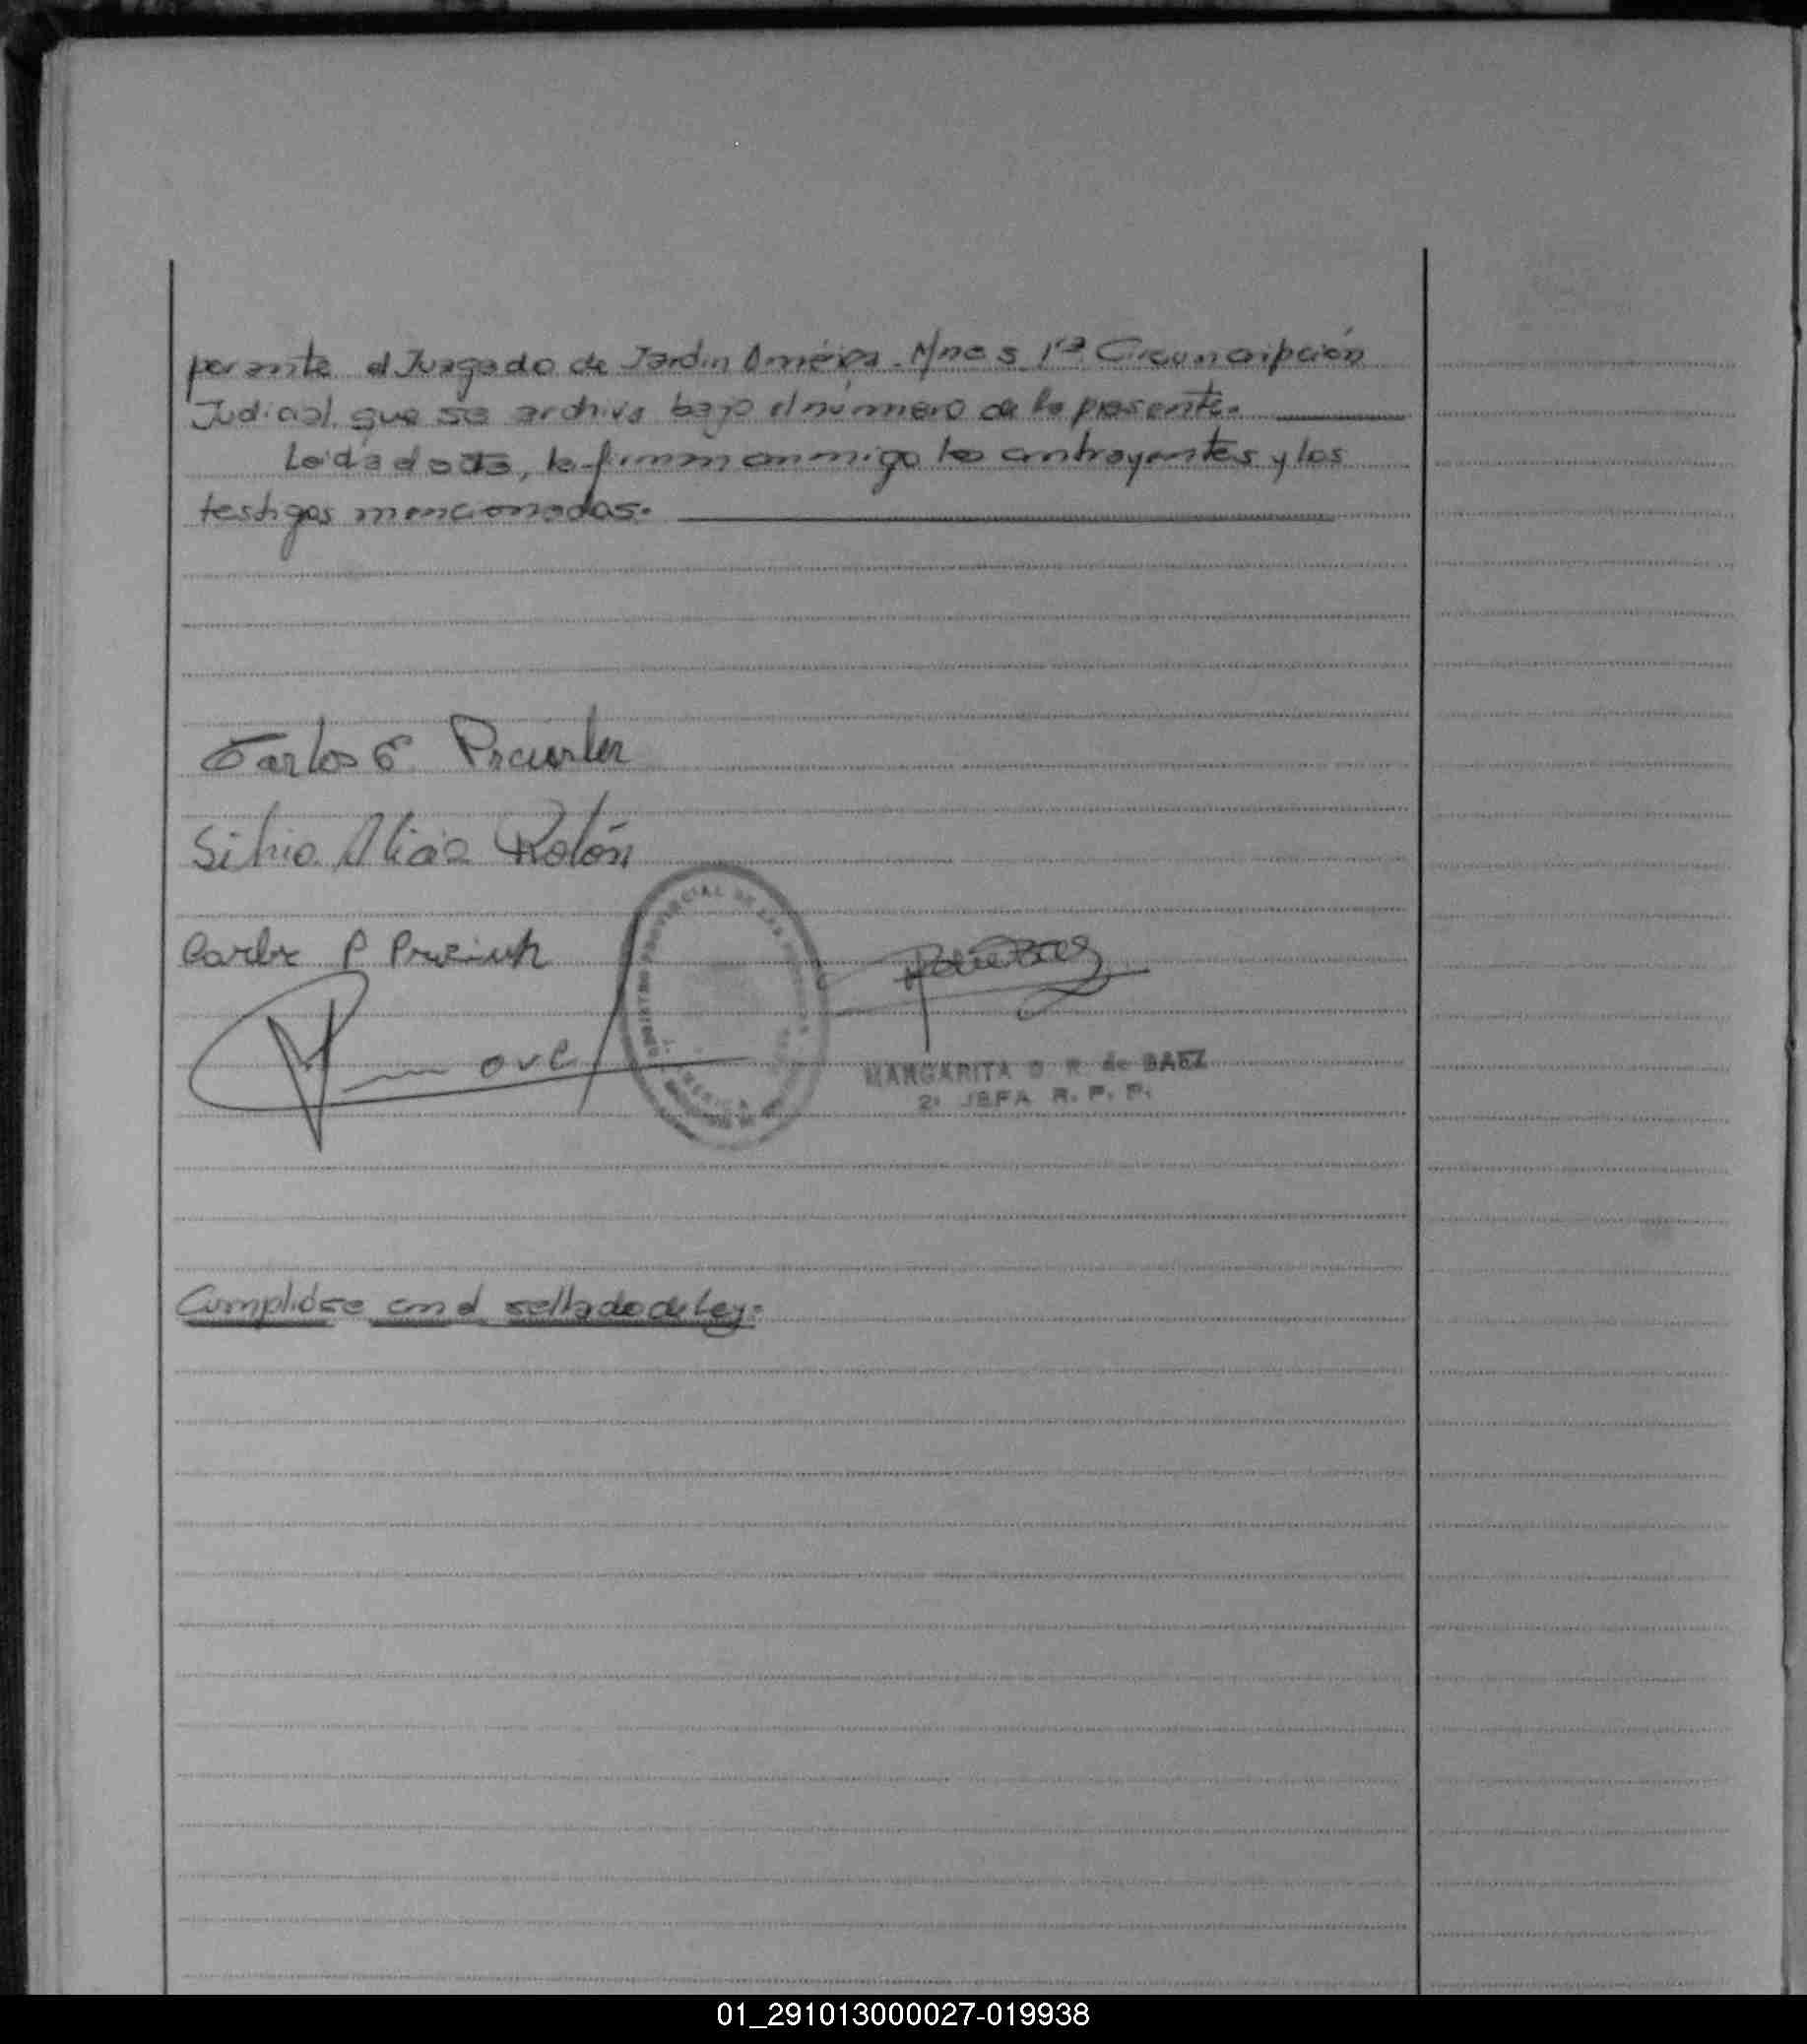 por ante el Juzgado de Jardín América. Mnes 1ra Circunscripción
Judicial, que se archiva bajo el número de la presente.
Leída el acta, la firman conmigo los contrayentes y los
testigos mencionados.
Carlos E
Silvia Alicia Rolón
Carlos P
MARGARITA D. R. de BAEZ
2a JEFA R. P. P.
REGISTRO PROVINCIAL DE LAS PERSONAS
Cumplióse con el sellado de Ley.
01_291013000027-019938